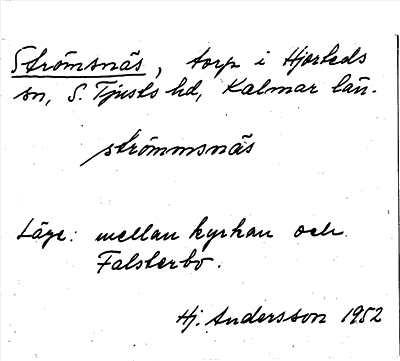 Strömsnäs, torp i Hjorteds
sn, S. Tjusts hd, Kalmar län.
strömmsnäs
Läge: mellan kyrkan och
Falsterbo.
Hj. Andersson 1952